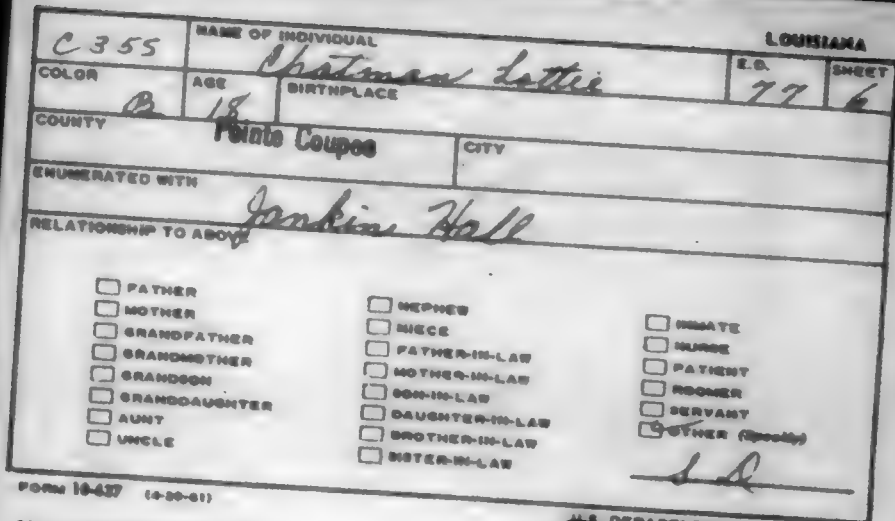 LOUISIANA
C355 NAME OF INDIVIDUAL Chatman Lottie E.D. 77 SHEET 6
COLOR B AGE 18 BIRTHPLACE
COUNTY Pointe Coupee CITY
ENUMERATED WITH Jankin Hall
RELATIONSHIP TO ABOVE
FATHER
MOTHER
GRANDFATHER
GRANDMOTHER
GRANDSON
GRANDDAUGHTER
AUNT
UNCLE
NEPHEW
NIECE
FATHER-IN-LAW
MOTHER-IN-LAW
SON-IN-LAW
DAUGHTER-IN-LAW
BROTHER-IN-LAW
SISTER-IN-LAW
INMATE
NURSE
PATIENT
ROOMER
SERVANT
OTHER (Specify)
S D
FORM 10-637 (4-20-61)